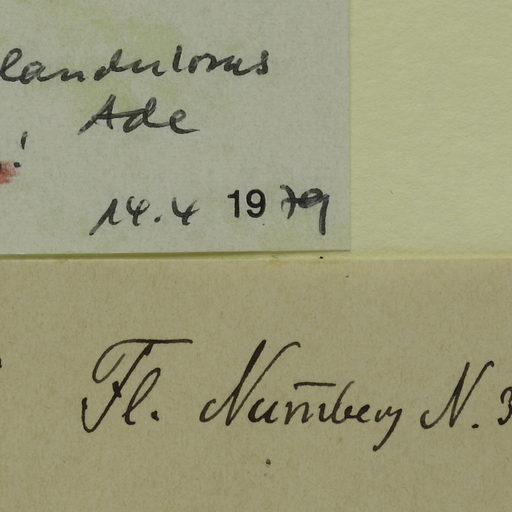 landulosus
Ade
!
14.4 1979
Fl. Nürnberg N. 3